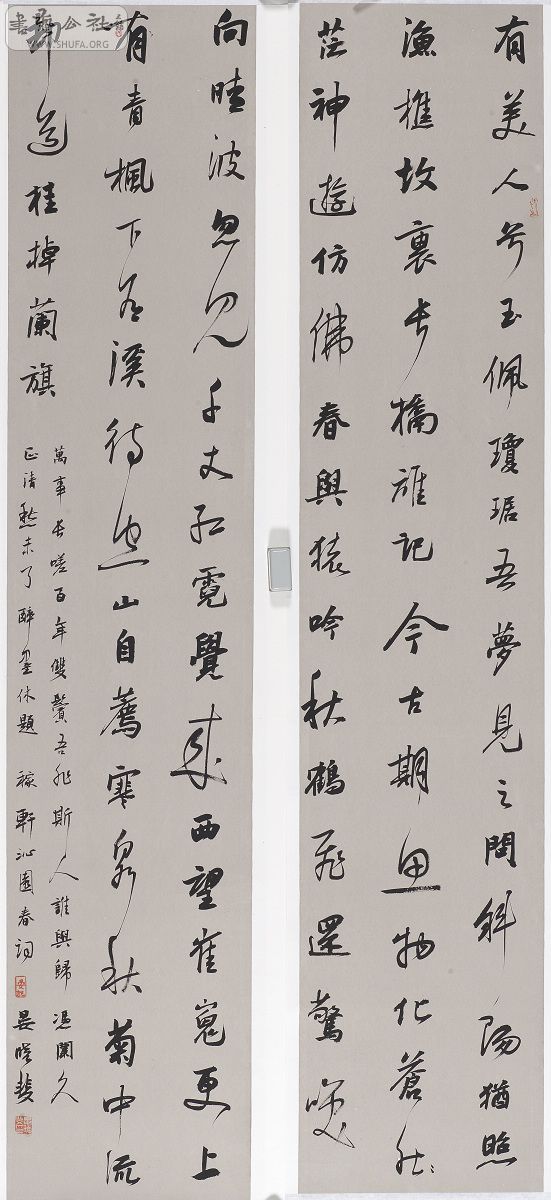 有美人兮玉佩瓊琚吾夢見之問斜陽猶照
漁樵故裏長橋誰記今古期思物化蒼
茫神遊仿佛春與猿吟秋鶴飛還驚笑
向晴波忽見千丈紅霓覺來西望崔嵬更上
有青楓下有溪待空山自薦寒泉秋菊中流
却送桂棹蘭旗
萬事長嗟百年雙鬢吾非斯人誰與歸憑闌久
正清愁未了醉墨休題 稼軒沁園春詞 晏
書法公社
WWW.SHUFA.ORG